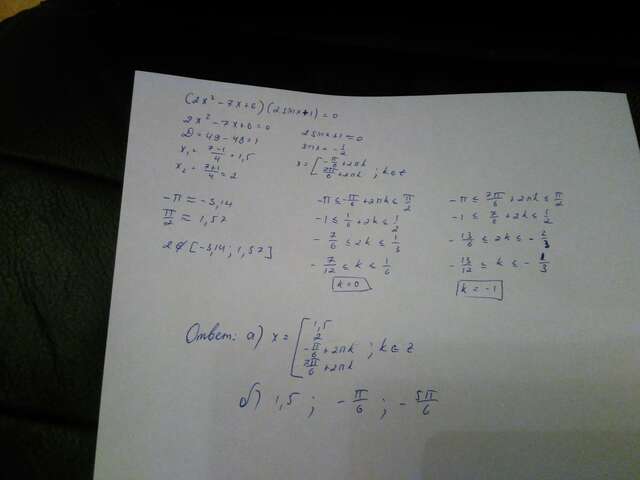 (2x² - 7x + 6)(2sinx + 1) = 0
2x² - 7x + 6 = 0
D = 49 - 48 = 1
x₁ = (7-1)/4 = 1,5
x₂ = (7+1)/4 = 2
2sinx + 1 = 0
sinx = -1/2
x = [ -π/6 + 2πk
7π/6 + 2πk ; k∈z
-π ≈ -3,14
π/2 ≈ 1,57
2∉[-3,14; 1,57]
-π ≤ -π/6 + 2πk ≤ π/2
-1 ≤ 1/6 + 2k ≤ 1/2
-7/6 ≤ 2k ≤ 1/3
-7/12 ≤ k ≤ 1/6
k = 0
-π ≤ 7π/6 + 2πk ≤ π/2
-1 ≤ 7/6 + 2k ≤ 1/2
-13/6 ≤ 2k ≤ -2/3
-13/12 ≤ k ≤ -1/3
k = -1
Ответ: а) x = [ 1,5
2
-π/6 + 2πk ; k∈z
7π/6 + 2πk
б) 1,5 ; -π/6 ; -5π/6